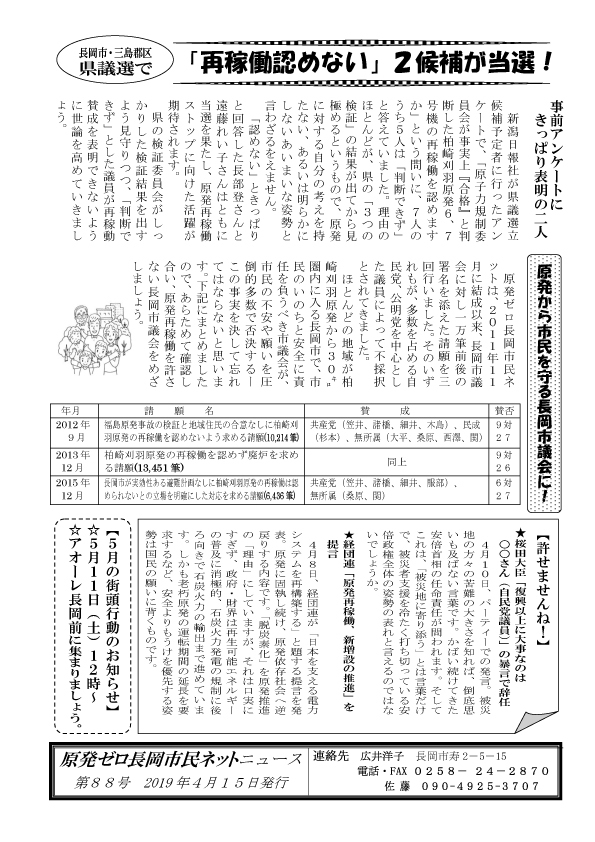 長岡市・三島郡区
県議選で
「再稼働認めない」２候補が当選！
事前アンケートに
きっぱり表明の二人
新潟日報社が県議選立
候補予定者に行ったアン
ケートで、「原子力規制委
員会が事実上『合格』と判
断した柏崎刈羽原発６、７
号機の再稼働を認めます
か」という問いに、７人の
うち５人は「判断できず」
と答えていました。理由の
ほとんどが、県の「３つの
検証」の結果が出てから見
極めるというもので、原発
に対する自分の考えを持
たない、あるいは明らかに
しないあいまいな姿勢と
言わざるをえません。
「認めない」ときっぱり
と回答した長部登さんと
遠藤れい子さんはともに
当選を果たし、原発再稼働
ストップに向けた活躍が
期待されます。
県の検証委員会がしっ
かりした検証結果を出す
よう見守りつつ、「判断で
きず」とした議員が再稼働
賛成を表明できないよう
に世論を高めていきまし
ょう。
原発から市民を守る長岡市議会に！
原発ゼロ長岡市民ネ
ットは、２０１１年１１
月に結成以来、長岡市議
会に対し一万筆前後の
署名を添えた請願を三
回行いました。そのいず
れもが、多数を占める自
民党、公明党を中心とし
た議員によって不採択
とされてきました。
ほとんどの地域が柏
崎刈羽原発から３０㌔
圏内に入る長岡市で、市
民のいのちと安全に責
任を負うべき市議会が、
市民の不安や願いを圧
倒的多数で否決する―
この事実を決して忘れ
てはならないと思いま
す。下記にまとめました
ので、あらためて確認し
合い、原発再稼働を許さ
ない長岡市議会をめざ
しましょう。
年月 請願名 賛成 賛否
2012年9月 福島原発事故の検証と地域住民の合意なしに柏崎刈羽原発の再稼働を認めないよう求める請願(10,214筆) 共産党（笠井、諸橋、細井、木島）、民成（杉本）、無所属（大平、桑原、西澤、関） 9対27
2013年12月 柏崎刈羽原発の再稼働を認めず廃炉を求める請願(13,451筆) 同上 9対26
2015年12月 長岡市が実効性ある避難計画なしに柏崎刈羽原発の再稼働は認められないとの立場を明確にした対応を求める請願(6,436筆) 共産党（笠井、諸橋、細井、服部）、無所属（桑原、関） 6対27
【許せませんね！】
★桜田大臣「復興以上に大事なのは
〇〇さん（自民党議員）」の暴言で辞任
４月１０日、パーティーでの発言。被災
地の方々の苦難の大きさを知れば、倒底思
いも及ばない言葉です。かばい続けてきた
安倍首相の任命責任が問われます。そして
これは、「被災地に寄り添う」とは言葉だけ
で、被災者支援を冷たく打ち切っている安
倍政権全体の姿勢の表れと言えるのではな
いでしょうか。
★経団連「原発再稼働、新増設の推進」を
提言
４月８日、経団連が「日本を支える電力
システムを再構築する」と題する提言を発
表。原発に固執し続け、原発依存社会へ逆
戻りする内容です。「脱炭素化」を原発推進
の「理由」にしていますが、それは口実に
すぎず、政府・財界は再生可能エネルギー
の普及に消極的、石炭火力発電の規制に後
ろ向きで石炭火力の輸出まで進めていま
す。しかも老朽原発の運転期間の延長を要
求するなど、安全よりもうけを優先する姿
勢は国民の願いに背くものです。
【５月の街頭行動のお知らせ】
☆５月１１日（土）１２時～
☆アオーレ長岡前に集まりましょう。
原発ゼロ長岡市民ネットニュース
第８８号　2019年４月１５日発行
連絡先　広井洋子　長岡市寿２－５－15
電話・FAX　0258－24－2870
佐藤　090-4925-3707